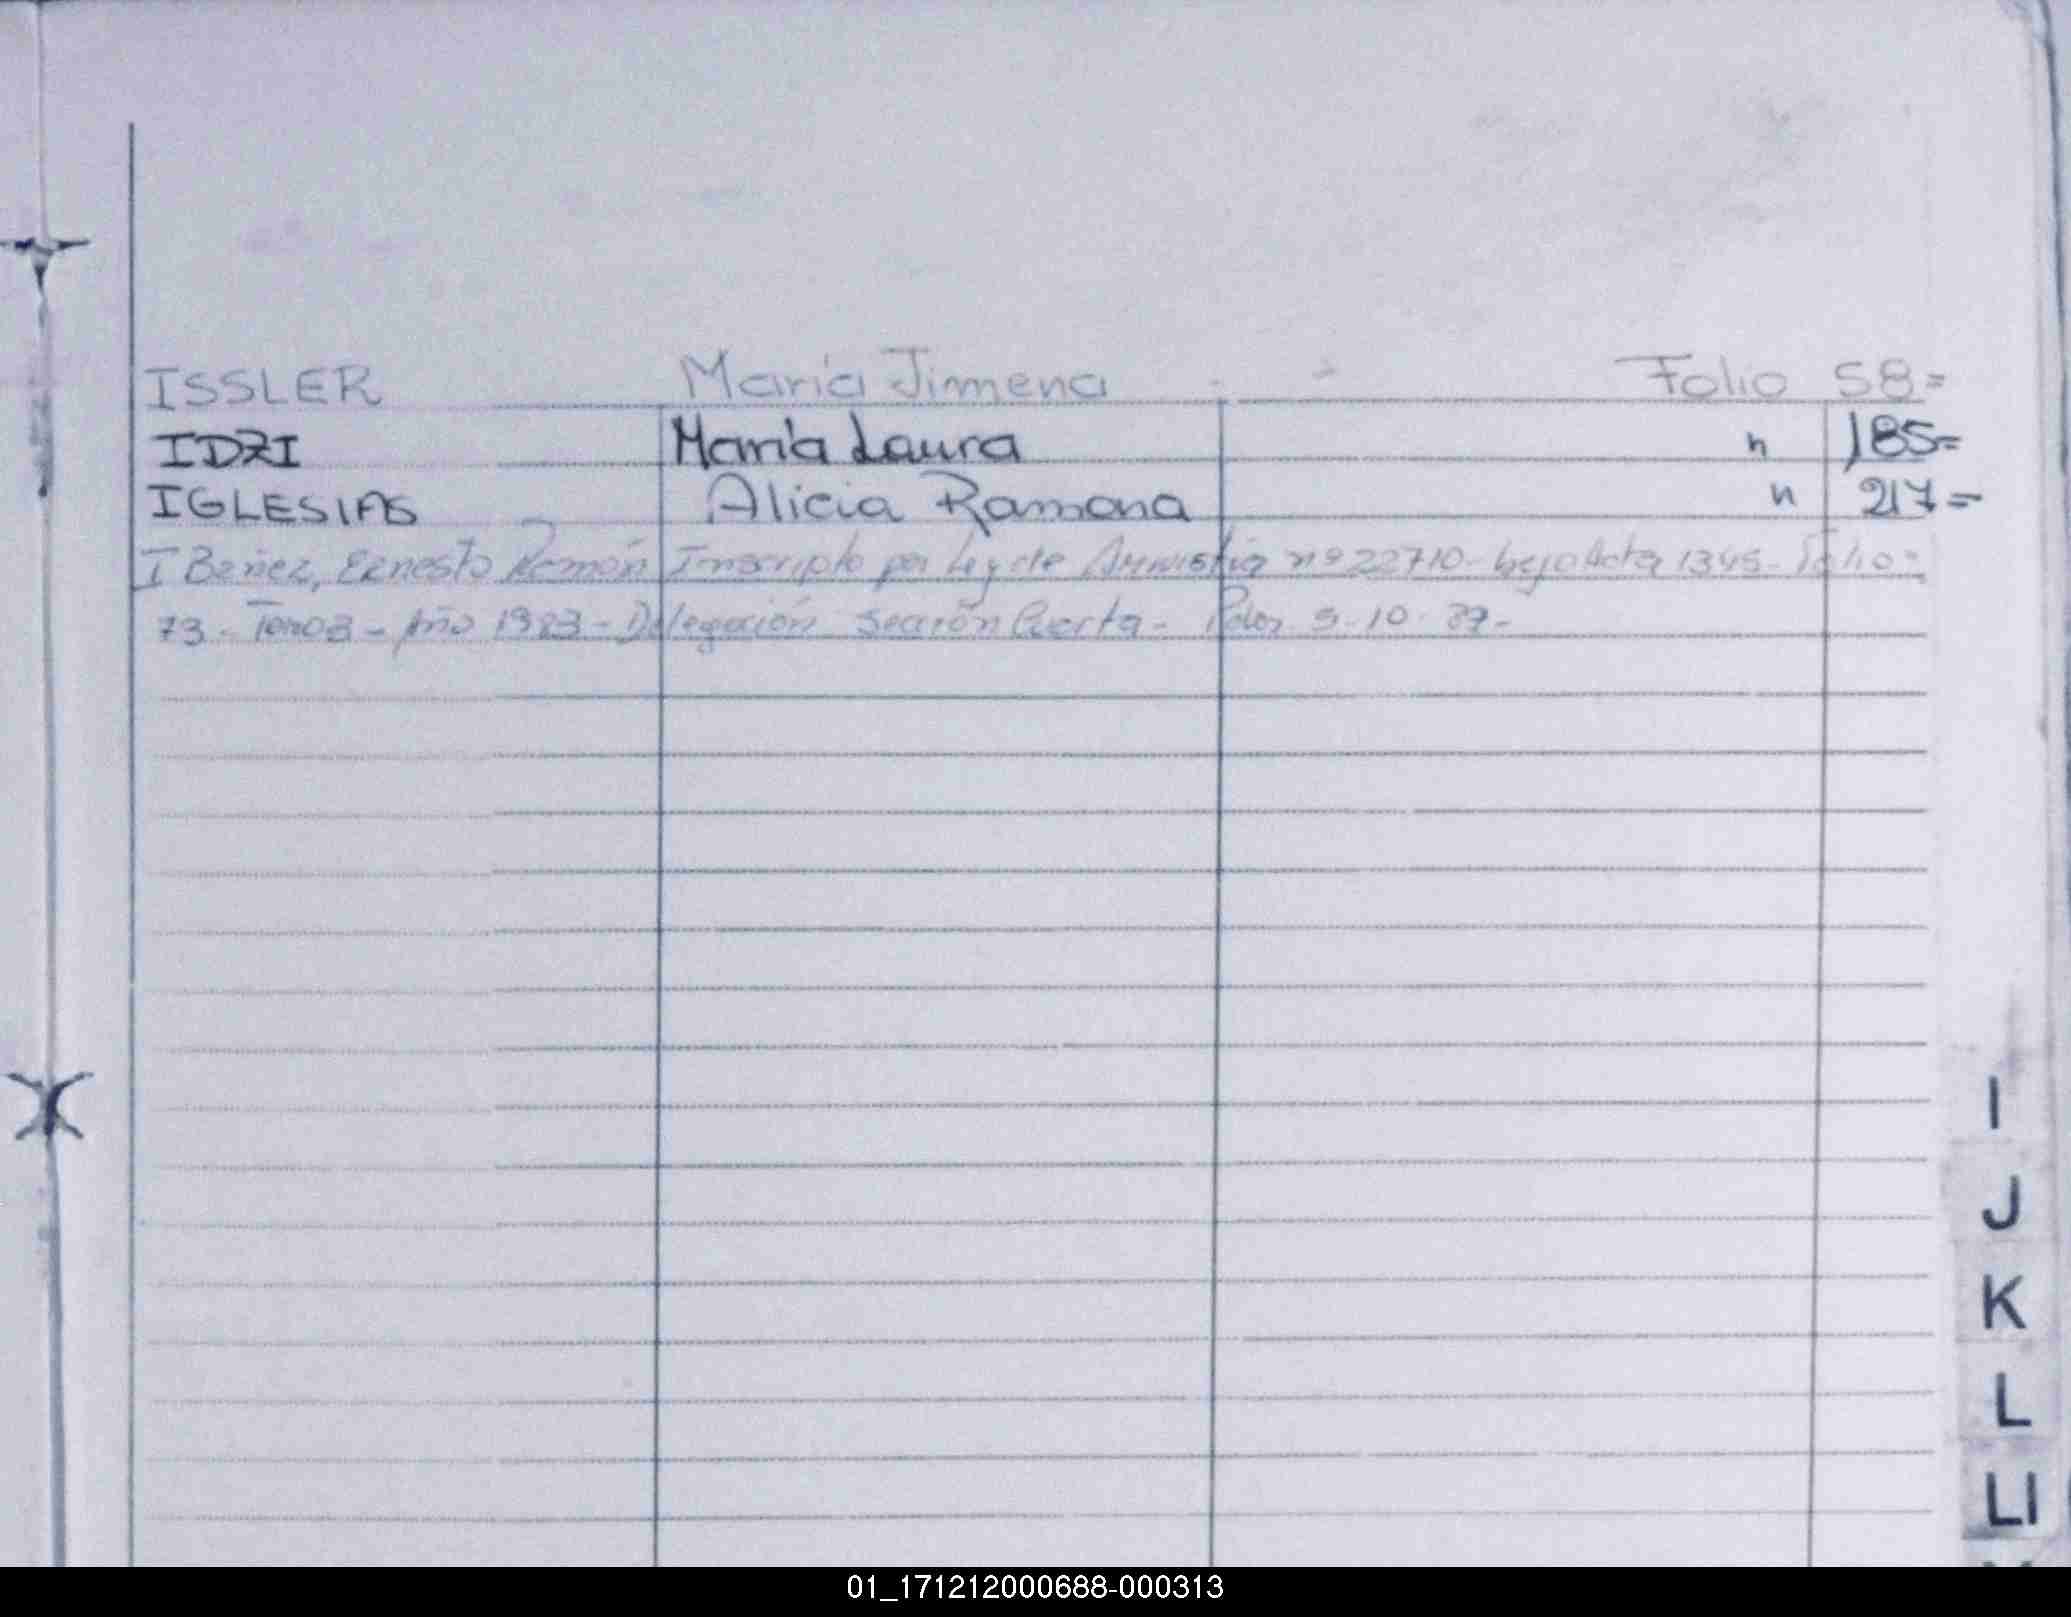 ISSLER María Jimena Folio 58=
IDZI María Laura " 185=
IGLESIAS Alicia Ramona " 217=
IBañez, Ernesto Ramón Inscripto por Ley de Amnistia nº 22710- bajo Acta 1345- Folio-
73- Tomo 3- Año 1983- Delegación Sección Cuarta- Pdas. 5-10-
I
J
K
L
Ll
01_171212000688-000313